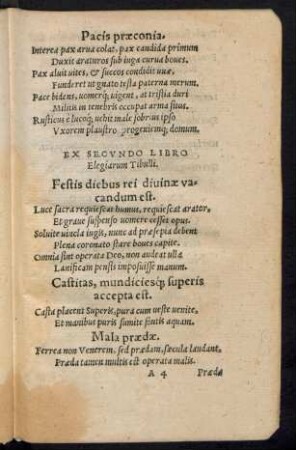 Pacis præconia.
Interea pax arua colat, pax candida primum
Duxit araturos sub iuga curua boues.
Pax aluit uites, & succos condidit uuæ,
Funderet ut gnato testa paterna merum.
Pace bidens, uomerq́; uigent, at tristia duri
Militis in tenebris occupat arma situs.
Rusticus e lucoq́; uehit male sobrius ipso
Vxorem plaustro progeniemq́; domum.
EX SECVNDO LIBRO
Elegiarum Tibulli.
Festis diebus rei diuinæ va-
candum est.
Luce sacra requiescat humus, requiescat arator,
Et graue suspenso uomere cesset opus.
Soluite uincla iugis, nunc ad præsepia debent
Plena coronato stare boues capite.
Omnia sint operata Deo, non audeat ulla
Lanificam pensis imposuisse manum.
Castitas, mundiciesq́; superis
accepta est.
Casta placent Superis, pura cum ueste uenite,
Et manibus puris sumite fontis aquam.
Mala prædæ.
Ferrea non Venerem, sed prædam, sæcula laudant,
Præda tamen multis est operata malis.
A 4 Præda